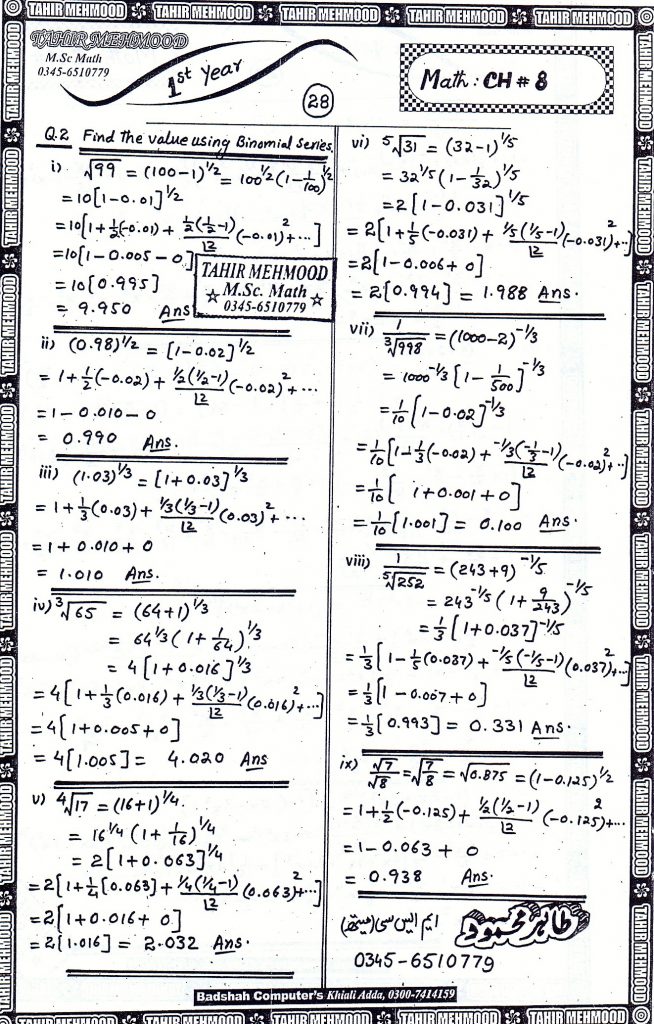 TAHIR MEHMOOD TAHIR MEHMOOD TAHIR MEHMOOD TAHIR MEHMOOD TAHIR MEHMOOD
TAHIR MEHMOOD
M.Sc Math
0345-6510779
1st Year
28
Math: CH # 8
Q.2 Find the value using Binomial Series.
i) √99 = (100-1)^1/2 = 100^1/2(1-1/100)^1/2
= 10[1-0.01]^1/2
= 10[1+1/2(-0.01) + 1/2(1/2-1)/|2 (-0.01)^2+...]
= 10[1-0.005-0]
= 10[0.995]
= 9.950 Ans
TAHIR MEHMOOD
☆ M.Sc. Math ☆
0345-6510779
ii) (0.98)^1/2 = [1-0.02]^1/2
= 1+1/2(-0.02) + 1/2(1/2-1)/|2 (-0.02)^2+...
= 1-0.010-0
= 0.990 Ans.
iii) (1.03)^1/3 = [1+0.03]^1/3
= 1+1/3(0.03)+ 1/3(1/3-1)/|2 (0.03)^2+...
= 1+0.010+0
= 1.010 Ans.
iv) ³√65 = (64+1)^1/3
= 64^1/3(1+1/64)^1/3
= 4[1+0.016]^1/3
= 4[1+1/3(0.016) + 1/3(1/3-1)/|2 (0.016)^2+...]
= 4[1+0.005+0]
= 4[1.005] = 4.020 Ans
v) ⁴√17 = (16+1)^1/4
= 16^1/4(1+1/16)^1/4
= 2[1+0.063]^1/4
= 2[1+1/4[0.063] + 1/4(1/4-1)/|2 (0.063)^2+...]
= 2[1+0.016+0]
= 2[1.016] = 2.032 Ans.
vi) ⁵√31 = (32-1)^1/5
= 32^1/5(1-1/32)^1/5
= 2[1-0.031]^1/5
= 2[1+1/5(-0.031) + 1/5(1/5-1)/|2 (-0.031)^2+..]
= 2[1-0.006+0]
= 2[0.994] = 1.988 Ans.
vii) 1/³√998 = (1000-2)^-1/3
= 1000^-1/3[1-1/500]^-1/3
= 1/10[1-0.02]^-1/3
= 1/10[1-1/3(-0.02) + -1/3(-1/3-1)/|2 (-0.02)^2+..]
= 1/10[1+0.001+0]
= 1/10[1.001] = 0.100 Ans.
viii) 1/⁵√252 = (243+9)^-1/5
= 243^-1/5(1+9/243)^-1/5
= 1/3[1+0.037]^-1/5
= 1/3[1-1/5(0.037) + -1/5(-1/5-1)/|2 (0.037)^2+..]
= 1/3[1-0.007+0]
= 1/3[0.993] = 0.331 Ans.
ix) √7/√8 = √7/8 = √0.875 = (1-0.125)^1/2
= 1+1/2(-0.125) + 1/2(1/2-1)/|2 (-0.125)^2+...
= 1-0.063+0
= 0.938 Ans.
طاہر محمود ایم ایس سی (میتھ)
0345-6510779
Badshah Computer's Khiali Adda, 0300-7414159
TAHIR MEHMOOD TAHIR MEHMOOD TAHIR MEHMOOD TAHIR MEHMOOD TAHIR MEHMOOD